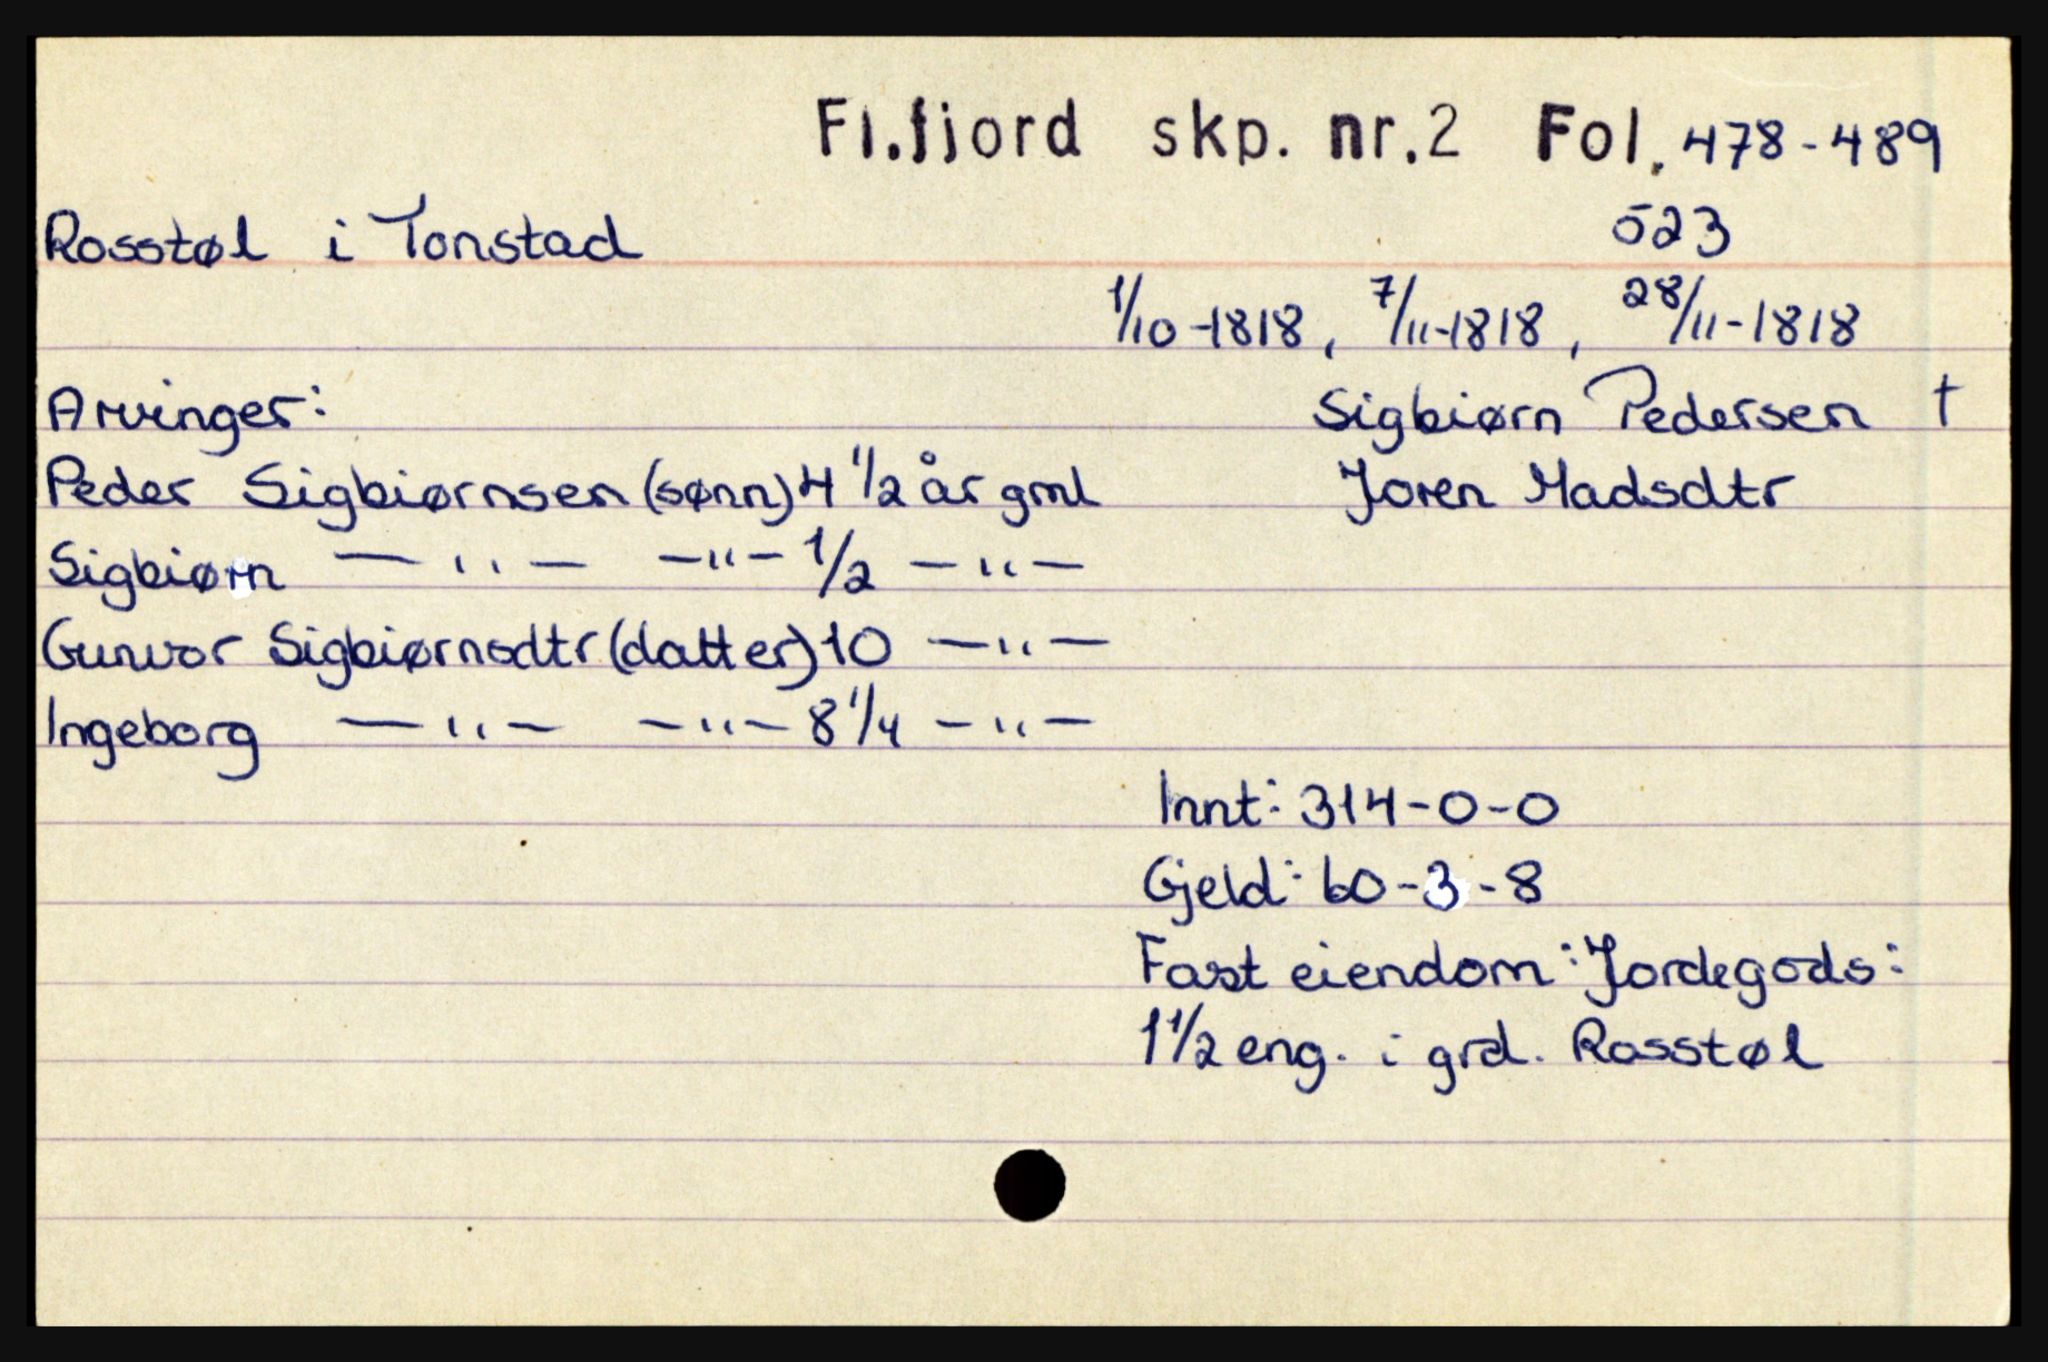 Fl.fjord skp. nr.2 Fol. 478-489
Rosstøl i Tonstad 523
1/10-1818, 7/11-1818, 28/11-1818
Arvinger: Sigbiørn Pedersen †
Peder Sigbiørnsen (sønn) 4 1/2 år gml Joren Madsdtr
Sigbiørn — " — — " — 1/2 — " —
Gunvor Sigbiørnsdtr (datter) 10 — " —
Ingeborg — " — — " — 8 1/4 — " —
Innt: 314-0-0
Gjeld: 60-3-8
Fast eiendom: Jordegods:
1 1/2 eng. i grd. Rosstøl